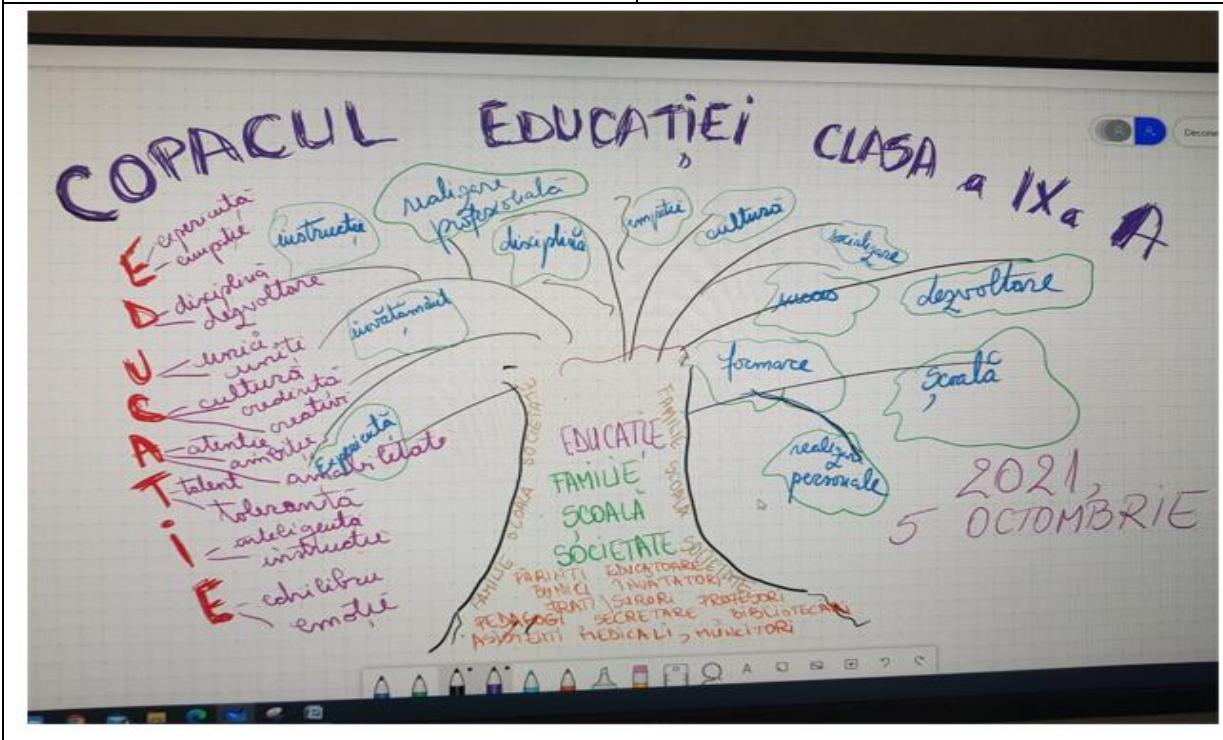 COPACUL EDUCAȚIEI CLASA a IX a A
Decone
E
experiență
empatie
D
disciplină
dezvoltare
U
unici
uniți
C
cultură
credință
creativi
A
atenție
ambiție
amabilitate
T
talent
toleranță
i
inteligență
instrucție
E
echilibru
emoție
instrucție
realizare
profesională
disciplină
empatie
cultură
socializare
succes
dezvoltare
învățământ
formare
școală
experiență
realizări
personale
EDUCAȚIE
FAMILIE
ȘCOALĂ
SOCIETATE
FAMILIE ȘCOALA SOCIETATE
FAMILIE ȘCOALA SOCIETATE
PĂRINȚI EDUCATOARE
BUNICI ÎNVĂȚĂTORI
FRAȚI SURORI PROFESORI
PEDAGOGI SECRETARE BIBLIOTECARI
ASISTENȚI MEDICALI, MUNCITORI
2021,
5 OCTOMBRIE